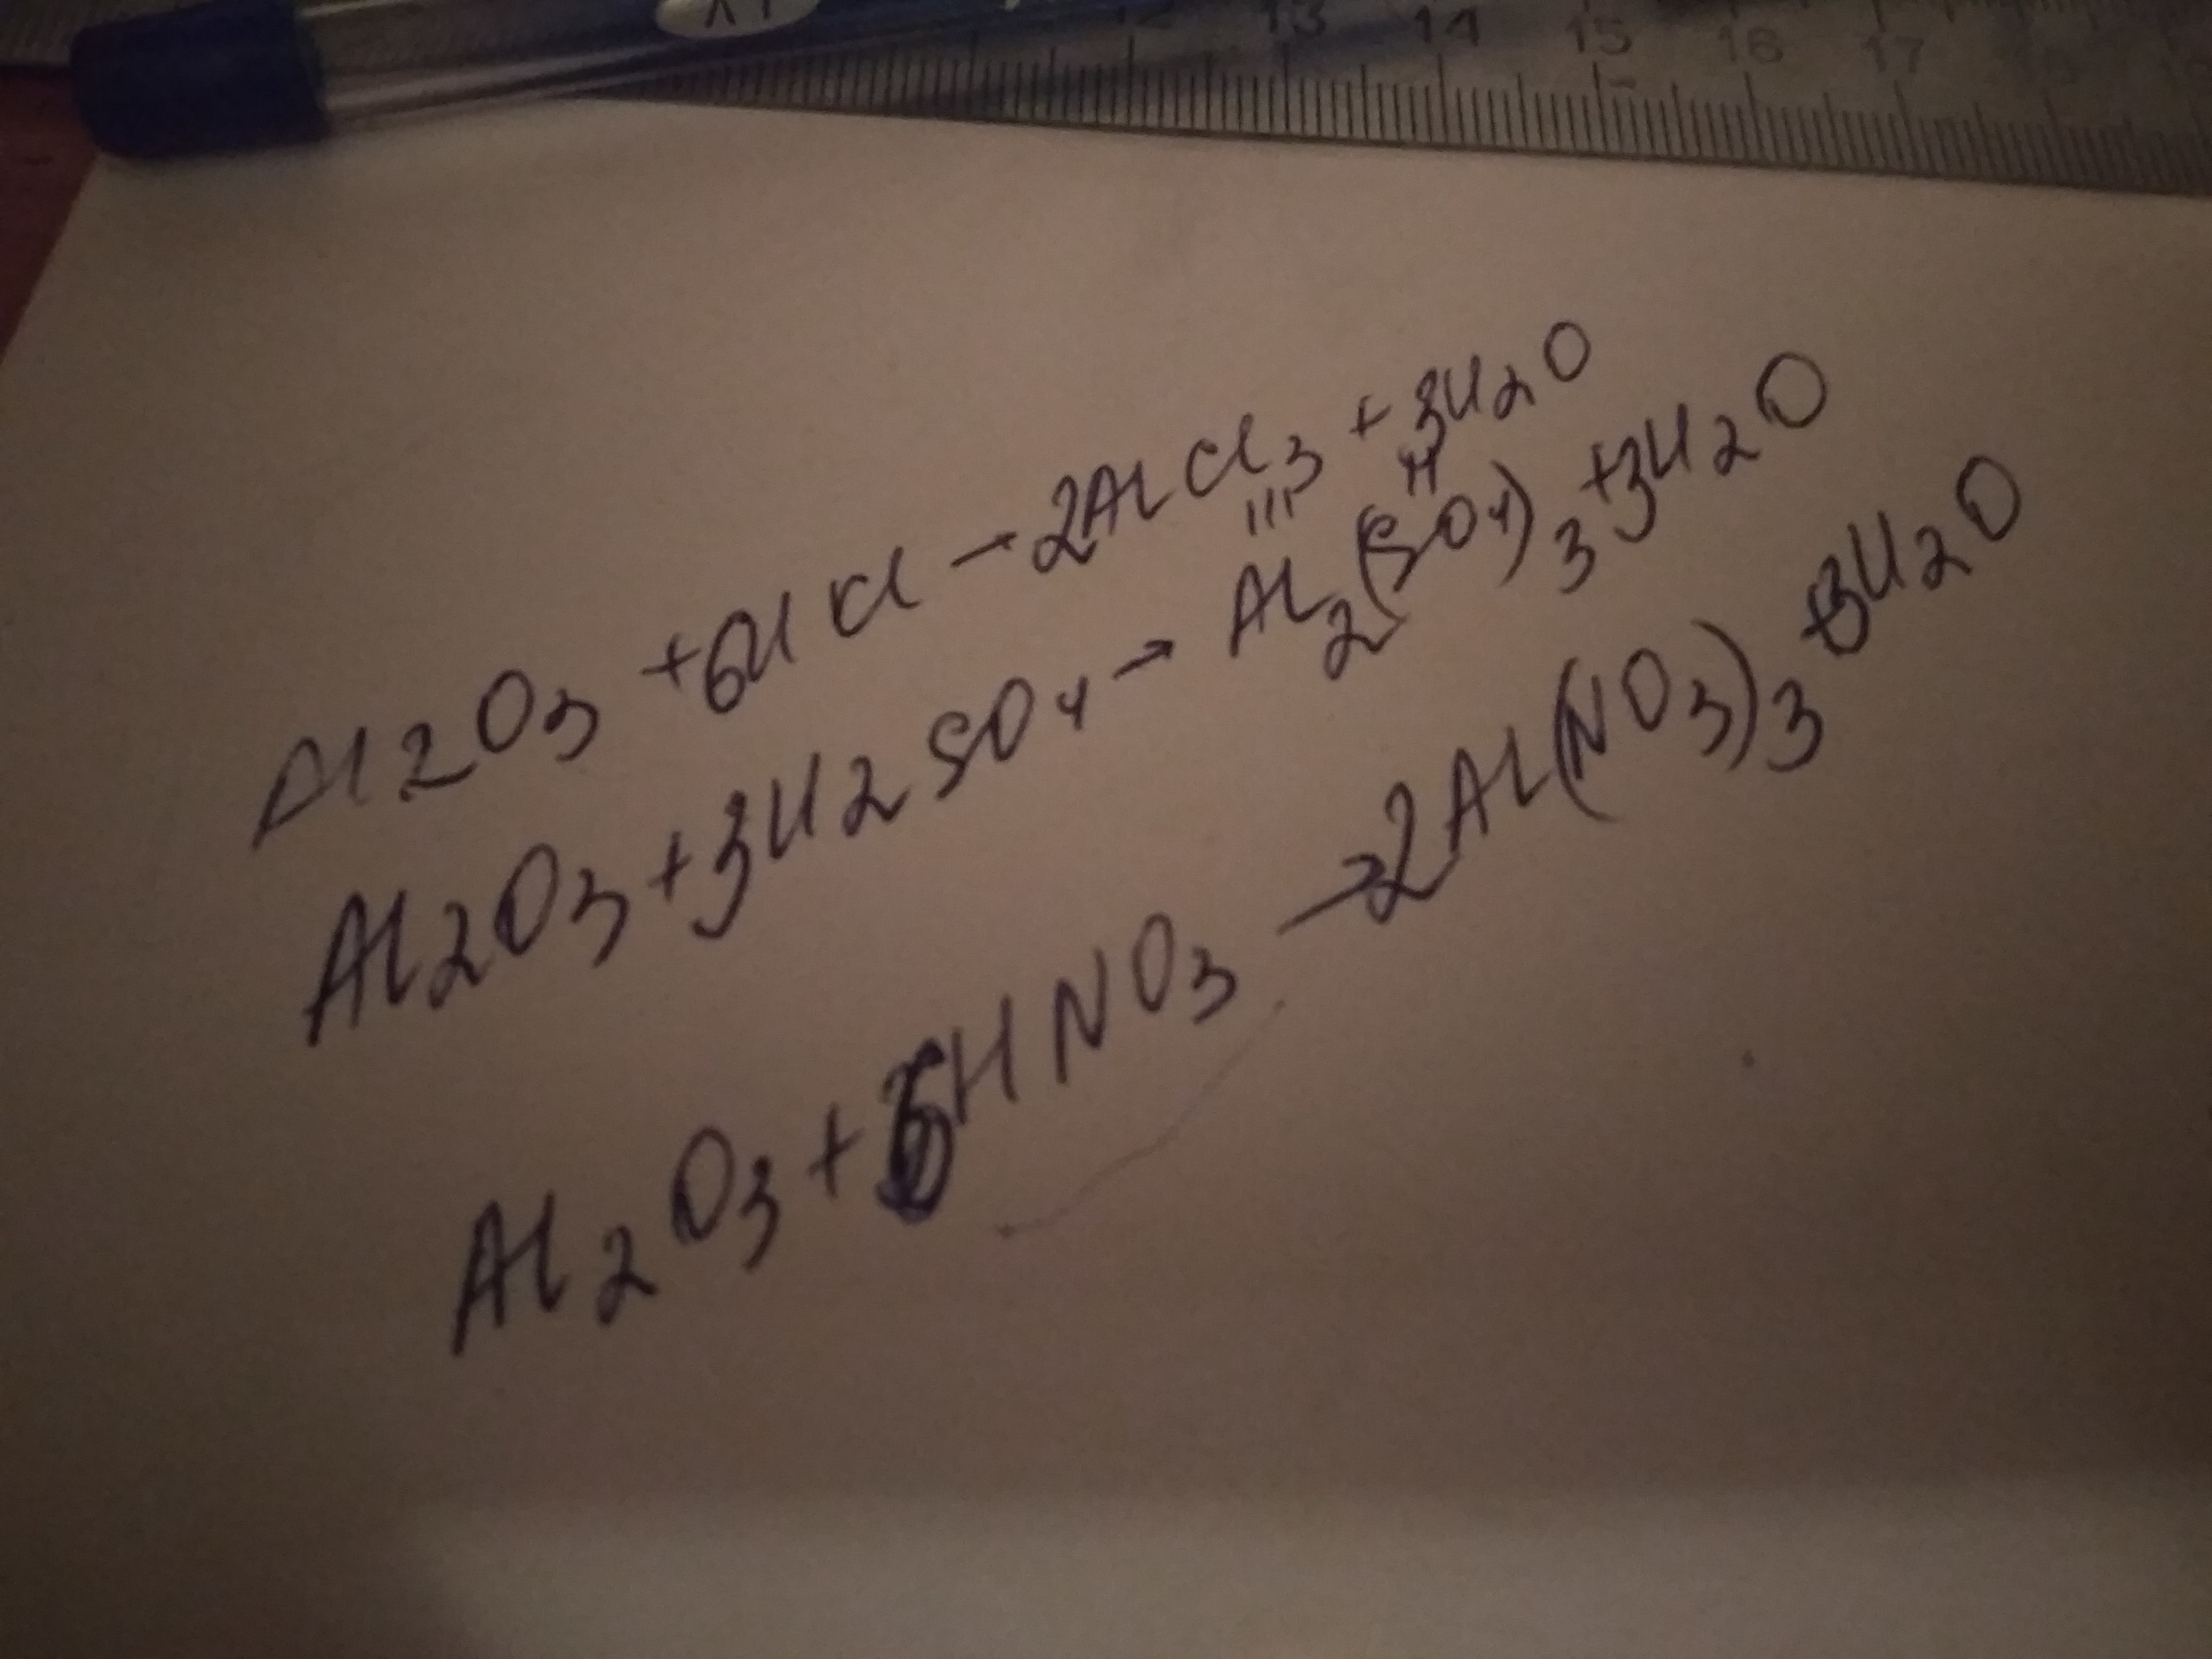 12 13 14 15 16 17
Al2O3 + 6HCl → 2AlCl3 + 3H2O
III II
Al2O3 + 3H2SO4 → Al2(SO4)3 + 3H2O
Al2O3 + 6HNO3 → 2Al(NO3)3 + 3H2O